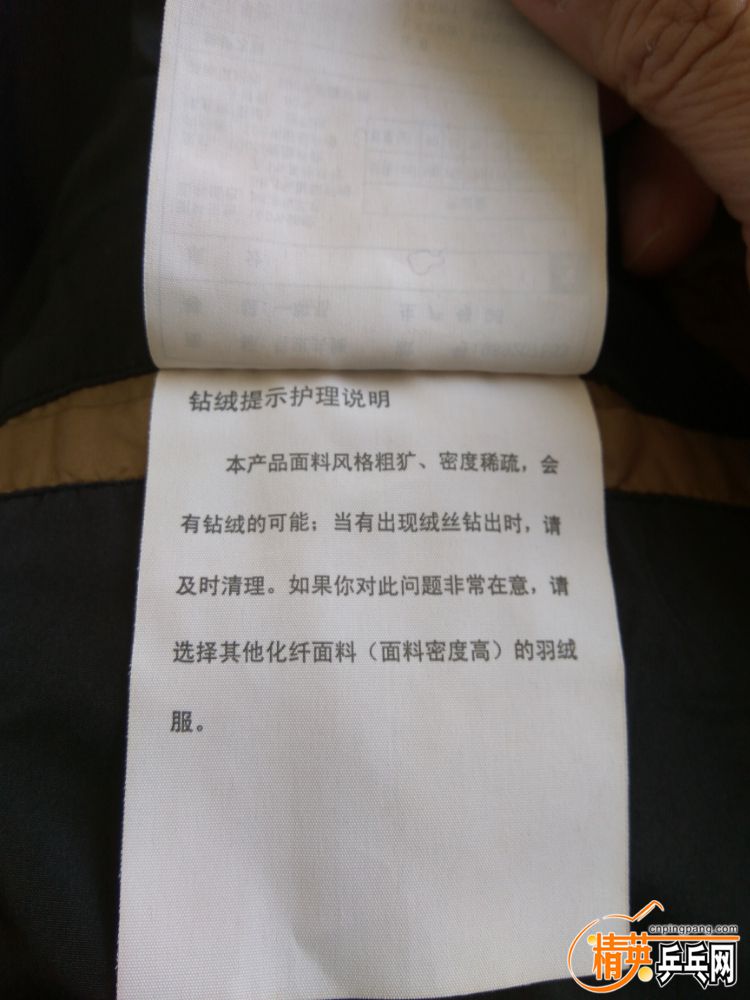 钻绒提示护理说明
本产品面料风格粗犷、密度稀疏，会
有钻绒的可能；当有出现绒丝钻出时，请
及时清理。如果你对此问题非常在意，请
选择其他化纤面料（面料密度高）的羽绒
服。
cnpingpang.com
精英乒乓网